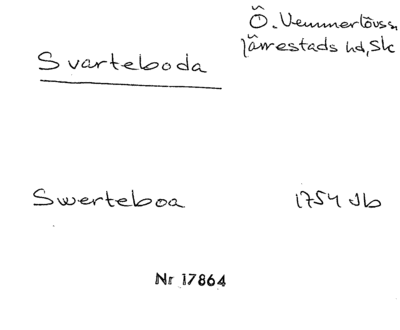 Ö. Vemmerlövs sn
Järrestads hd, Sk
Svarteboda
Swerteboa 1754 Jb
Nr 17864